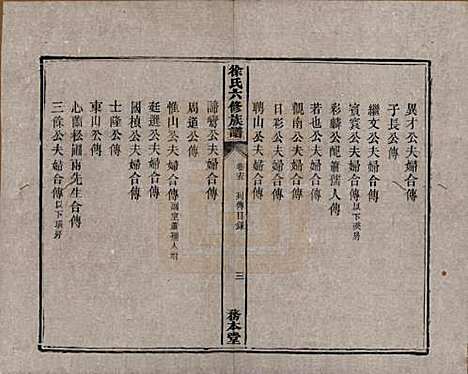 異才公夫婦合傳
子長公傳
繼文公夫婦合傳
賓寰公夫婦合傳以下瑛房
彩麟公配蕭孺人傳
若也公夫婦合傳
觀南公夫婦合傳
日彩公夫婦合傳
聘山公夫婦合傳
徐氏六修族譜
列傳目錄
三
務本堂
諦齋公夫婦合傳
周道公傳
惟山公夫婦合傳
廷選公夫婦合傳
國楨公夫婦合傳
士隆公傳
東山公傳
心齋松圃兩先生合傳
三餘公夫婦合傳以下瑛房